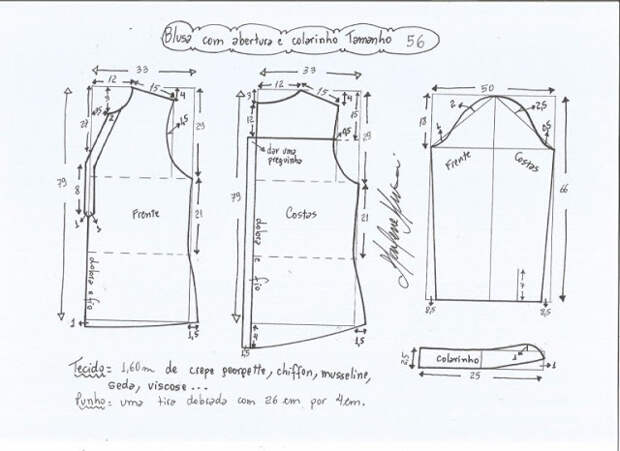 Blusa com abertura e colarinho Tamanho 56
33
12
15
4
3
2
1,5
29
79
8
21
Frente
dobra e fio
1
1
1
1,5
33
12
15
4
3
12
15
0,5
29
dar uma preguinha
79
21
Costas
dobra e fio
4
1,5
1,5
50
2
2,5
18
1
0,5
Frente
Costas
66
7
8,5
8,5
2,5
colarinho
1
1
1
25
Tecido = 1,60m de crepe georgette, chiffon, musseline,
seda, viscose ...
Punho = uma tira dobrada com 26 cm por 4 cm.